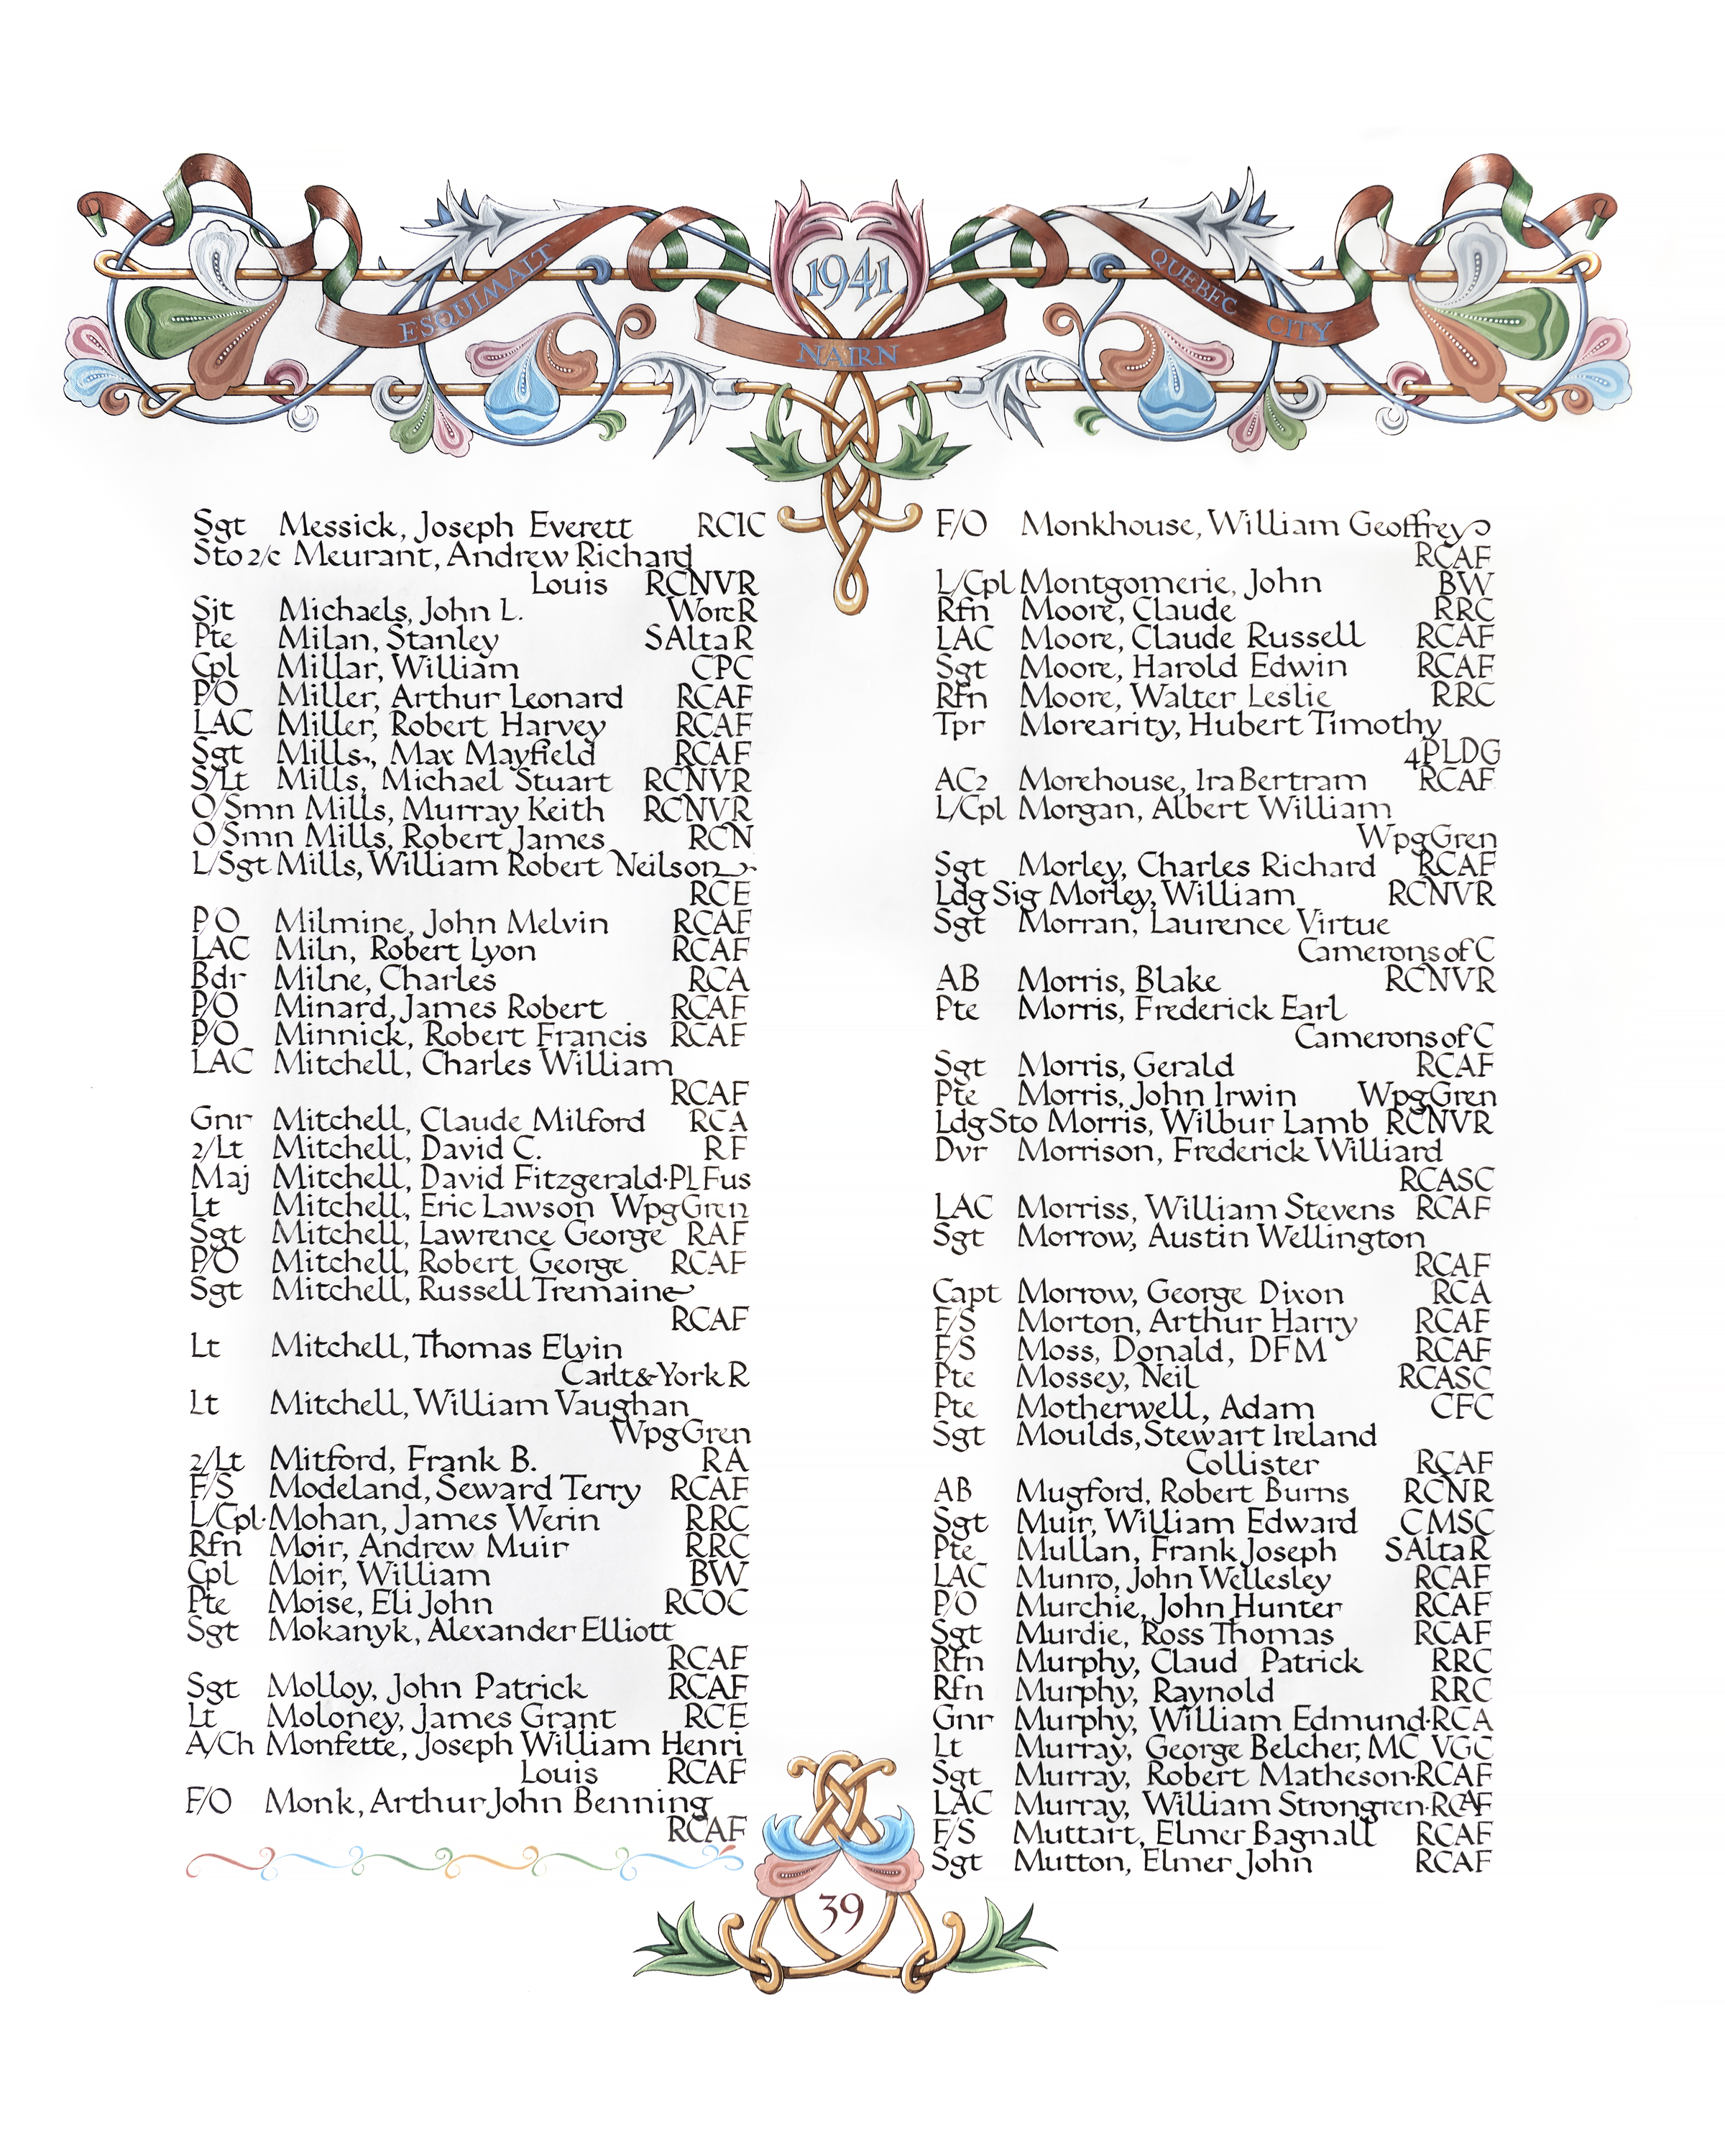 1941
ESQUIMALT
NAIRN
QUEBEC CITY
Sgt Messick, Joseph Everett RCIC
Sto 2/c Meurant, Andrew Richard
Louis RCNVR
Sjt Michaels, John L. WorcR
Pte Milan, Stanley SAltaR
Cpl Millar, William CPC
P/O Miller, Arthur Leonard RCAF
LAC Miller, Robert Harvey RCAF
Sgt Mills, Max Mayfield RCAF
S/Lt Mills, Michael Stuart RCNVR
O/Smn Mills, Murray Keith RCNVR
O/Smn Mills, Robert James RCN
L/Sgt Mills, William Robert Neilson
RCE
P/O Milmine, John Melvin RCAF
LAC Miln, Robert Lyon RCAF
Bdr Milne, Charles RCA
P/O Minard, James Robert RCAF
P/O Minnick, Robert Francis RCAF
LAC Mitchell, Charles William
RCAF
Gnr Mitchell, Claude Milford RCA
2/Lt Mitchell, David C. RF
Maj Mitchell, David Fitzgerald·PLFus
Lt Mitchell, Eric Lawson WpgGren
Sgt Mitchell, Lawrence George RAF
P/O Mitchell, Robert George RCAF
Sgt Mitchell, Russell Tremaine
RCAF
Lt Mitchell, Thomas Elvin
Carlt&York R
Lt Mitchell, William Vaughan
WpgGren
2/Lt Mitford, Frank B. RA
F/S Modeland, Seward Terry RCAF
L/Cpl·Mohan, James Werin RRC
Rfn Moir, Andrew Muir RRC
Cpl Moir, William BW
Pte Moise, Eli John RCOC
Sgt Mokanyk, Alexander Elliott
RCAF
Sgt Molloy, John Patrick RCAF
Lt Moloney, James Grant RCE
A/Ch Monfette, Joseph William Henri
Louis RCAF
F/O Monk, Arthur John Benning
RCAF
F/O Monkhouse, William Geoffrey
RCAF
L/Cpl Montgomerie, John BW
Rfn Moore, Claude RRC
LAC Moore, Claude Russell RCAF
Sgt Moore, Harold Edwin RCAF
Rfn Moore, Walter Leslie RRC
Tpr Morearity, Hubert Timothy
4PLDG
AC2 Morehouse, Ira Bertram RCAF
L/Cpl Morgan, Albert William
WpgGren
Sgt Morley, Charles Richard RCAF
LdgSig Morley, William RCNVR
Sgt Morran, Laurence Virtue
Camerons of C
AB Morris, Blake RCNVR
Pte Morris, Frederick Earl
Camerons of C
Sgt Morris, Gerald RCAF
Pte Morris, John Irwin WpgGren
LdgSto Morris, Wilbur Lamb RCNVR
Dvr Morrison, Frederick Williard
RCASC
LAC Morriss, William Stevens RCAF
Sgt Morrow, Austin Wellington
RCAF
Capt Morrow, George Dixon RCA
F/S Morton, Arthur Harry RCAF
F/S Moss, Donald, DFM RCAF
Pte Mossey, Neil RCASC
Pte Motherwell, Adam CFC
Sgt Moulds, Stewart Ireland
Collister RCAF
AB Mugford, Robert Burns RCNR
Sgt Muir, William Edward CMSC
Pte Mullan, Frank Joseph SAltaR
LAC Munro, John Wellesley RCAF
P/O Murchie, John Hunter RCAF
Sgt Murdie, Ross Thomas RCAF
Rfn Murphy, Claud Patrick RRC
Rfn Murphy, Raynold RRC
Gnr Murphy, William Edmund·RCA
Lt Murray, George Belcher, MC VGC
Sgt Murray, Robert Matheson·RCAF
LAC Murray, William Strongren·RCAF
F/S Muttart, Elmer Bagnall RCAF
Sgt Mutton, Elmer John RCAF
39